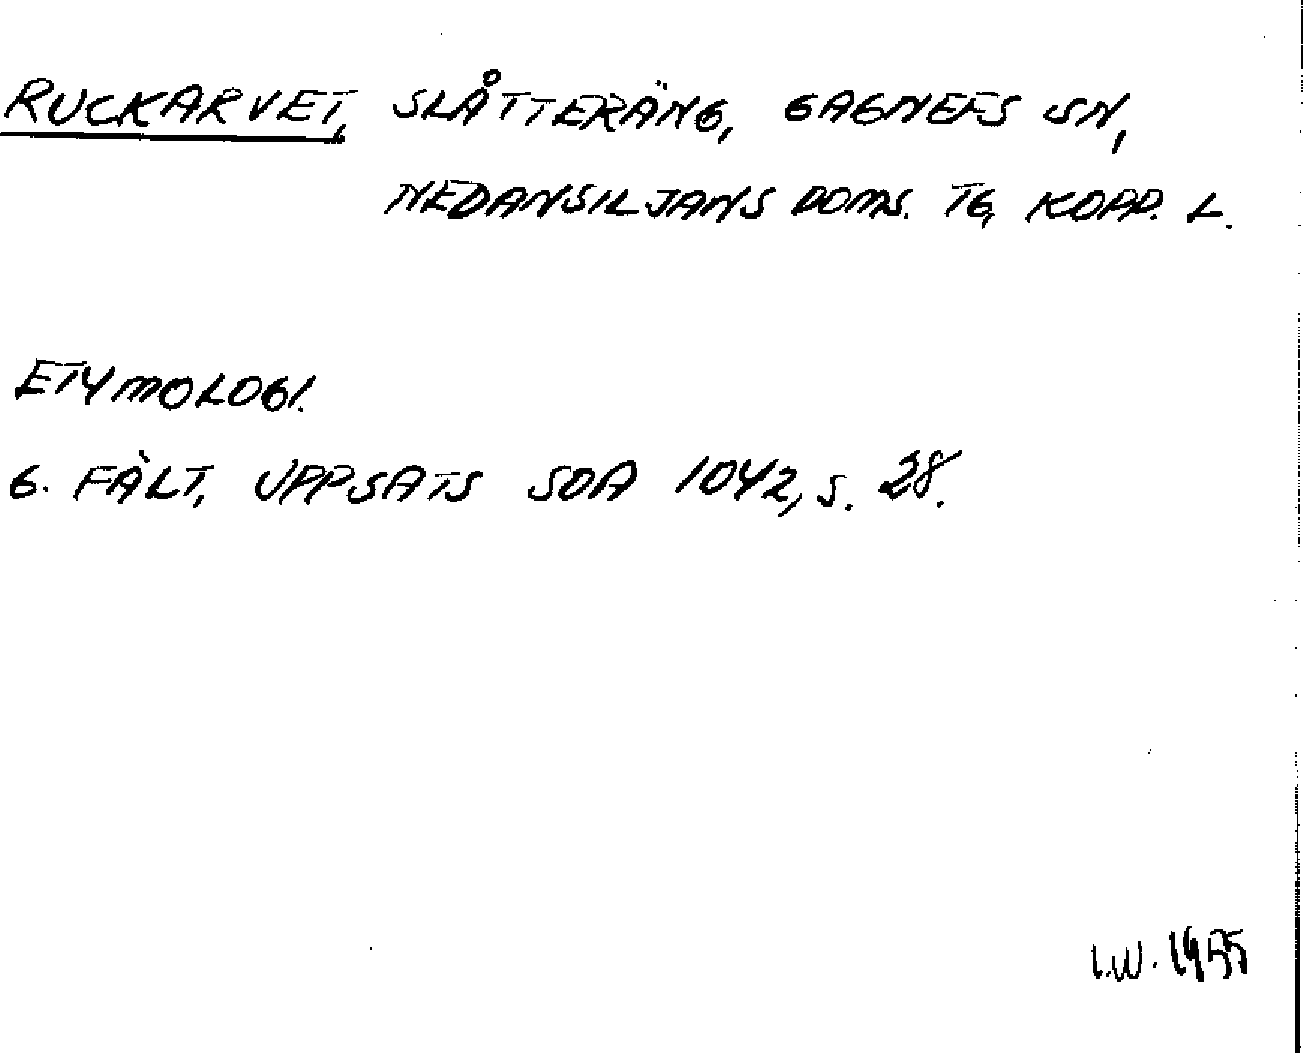 RUCKARVET, SLÅTTERÄNG, GAGNEFS SN,
NEDANSILJANS DOMS. TG, KOPP. L.
ETYMOLOGI.
G. FÄLT, UPPSATS SOA 1042, S. 28.
I.W. 1955